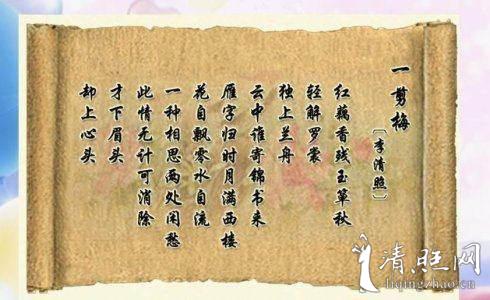 一剪梅
〔李清照〕
红藕香残玉簟秋
轻解罗裳
独上兰舟
云中谁寄锦书来
雁字归时月满西楼
花自飘零水自流
一种相思两处闲愁
此情无计可消除
才下眉头
却上心头
清照网
liqingzhao.cn